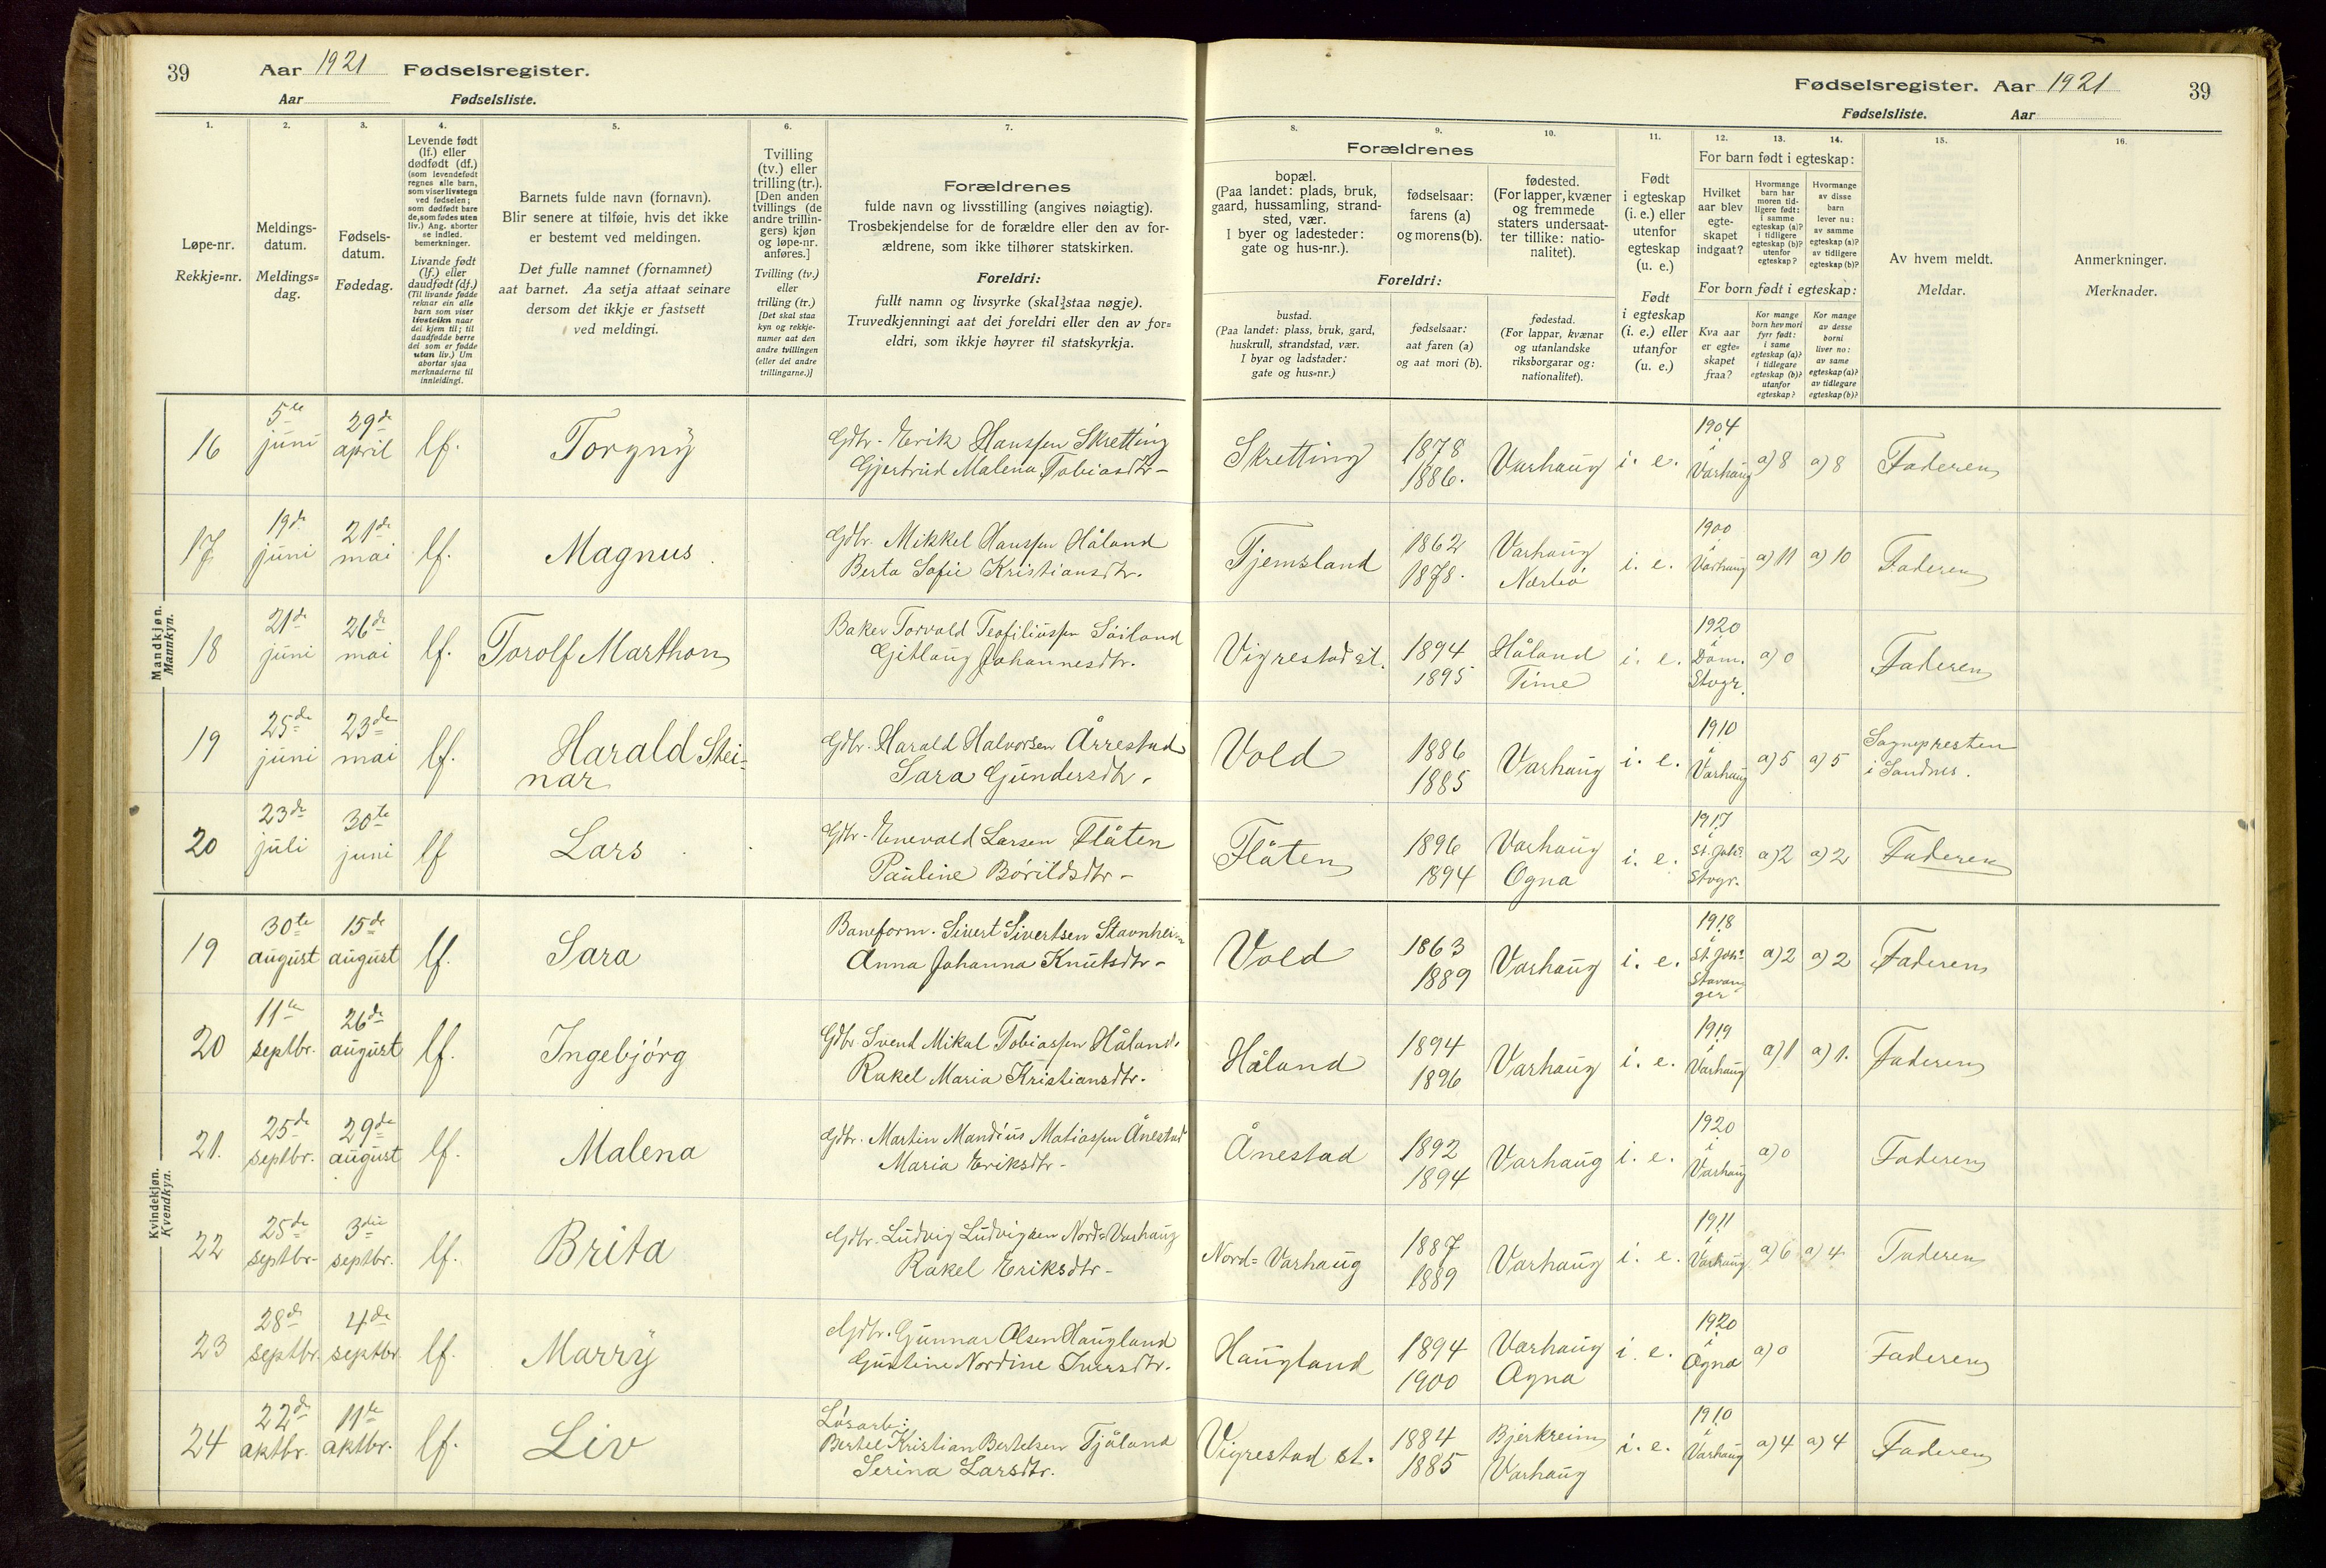 39 Aar 1921 Fødselsregister.
Aar Fødselsliste.
Fødselsregister. Aar 1921 39
Fødselsliste. Aar
1.
Løpe-nr.
Rekkje=nr.
2.
Meldings-
datum.
Meldings=
dag.
3.
Fødsels-
datum.
Fødedag.
4.
Levende født
(lf.) eller
dødfødt (df.)
(som levendefødt
regnes alle barn,
som viser livstegn
ved fødselen;
som dødfødt bare
de, som fødes uten
liv.) Ang. aborter
se indled.
bemerkninger.
Livande født
(lf.) eller
daudfødt (df.)
(Til livande fødde
reknar ein alle
barn som viser
livsteikn naar
dei kjem til; til
daudfødde berre
dei som er fødde
utan liv.) Um
abortar sjaa
merknaderne til
innleidingi.
5.
Barnets fulde navn (fornavn).
Blir senere at tilføie, hvis det ikke
er bestemt ved meldingen.
Det fulle namnet (fornamnet)
aat barnet. Aa setja attaat seinare
dersom det ikkje er fastsett
ved meldingi.
6.
Tvilling
(tv.) eller
trilling (tr.).
[Den anden
tvillings (de
andre trillin-
gers) kjøn
og løpe-nr.
anføres.]
Tvilling (tv.)
eller
trilling (tr.)
[Det skal staa
kyn og rekkje-
numer aat den
andre tvillingen
(eller dei andre
trillingarne.)]
7.
Forældrenes
fulde navn og livsstilling (angives nøiagtig).
Trosbekjendelse for de forældre eller den av for-
ældrene, som ikke tilhører statskirken.
Foreldri:
fullt namn og livsyrke (skal staa nøgje).
Truvedkjenningi aat dei foreldri eller den av for=
eldri, som ikkje høyrer til statskyrkja.
Forældrenes
8.
bopæl.
(Paa landet: plads, bruk,
gaard, hussamling, strand-
sted, vær.
I byer og ladesteder:
gate og hus-nr.).
9.
fødselsaar:
farens (a)
og morens (b).
10.
fødested.
(For lapper, kvæner
og fremmede
staters undersaat-
ter tillike: natio-
nalitet).
Foreldri:
bustad.
(Paa landet: plass, bruk, gard,
huskrull, strandstad, vær.
I byar og ladstader:
gate og hus=nr.)
fødselsaar:
aat faren (a)
og aat mori (b).
fødestad.
(For lappar, kvænar
og utanlandske
riksborgarar og:
nationalitet).
11.
Født
i egteskap
(i. e.) eller
utenfor
egteskap
(u. e.)
Født
i egteskap
(i. e.) eller
utanfor
(u. e.)
12. 13. 14.
For barn født i egteskap:
Hvilket
aar blev
egte-
skapet
indgaat?
Hvormange
barn har
moren tid-
ligere født:
i samme
egteskap (a)?
i tidligere
egteskap (b)?
utenfor
egteskap?
Hvormange
av disse
barn
lever nu:
av samme
egteskap (a)?
av tidligere
egteskap (b)?
For born født i egteskap:
Kva aar
er egte=
skapet
fraa?
Kor mange
born hev mori
fyrr født:
i same
egteskap (a)?
i tidlegare
egteskap (b)?
utanfor
egteskap?
Kor mange
av desse
borni
liver no:
av same
egteskap (a)?
av tidlegare
egteskap (b)?
15.
Av hvem meldt.
Meldar.
16.
Anmerkninger.
Merknader.
Mandkjøn.
Mannkyn.
16 5te juni 29de april lf. Torgny
Gdbr. Erik Hanssen Skretting
Gjertrud Malena Tobiasdtr-
Skretting 1878 1886. Varhaug i. e. 1904 i Varhaug a) 8 a) 8 Faderen
17 19de juni 21de mai lf. Magnus
Gdbr. Mikkel Hanssen Håland
Berta Sofie Kristiansdtr.
Tjemsland 1862 1878. Varhaug Nærbö i. e. 1900 i Varhaug a) 11 a) 10 Faderen
18 21de juni 26de mai lf. Torolf Marthon
Baker Torvald Teofiliussen Söiland
Gitlaug Johannesdtr.
Vigrestad st. 1894 1895 Håland Time i. e. 1920 i Dom. Stvgr. a) 0 Faderen
19 25de juni 23de mai lf. Harald Stei=
nar
Gdbr. Harald Halvorsen Årrestad
Sara Gundersdtr.
Vold 1886 1885 Varhaug i. e. 1910 i Varhaug a) 5 a) 5 Sognepresten
i Sandnes.
20 23de juli 30te juni lf Lars
Gdbr. Enevald Larsen Flåten
Pauline Börildsdtr-
Flåten 1896 1894 Varhaug Ogna i. e. 1917 i St. Johs. Stvgr. a) 2 a) 2 Faderen
Kvindekjøn.
Kvendkyn.
19 30te august 15de august lf. Sara
Baneform. Sivert Sivertsen Stavnheim
Anna Johanna Knutsdtr-
Vold 1863 1889 Varhaug i. e. 1918 i St. Johs. Stavan ger a) 2 a) 2 Faderen
20 11te septbr. 26de august lf. Ingebjörg
Gdbr Svend Mikal Tobiassen Håland.
Rakel Maria Kristiansdtr.
Håland 1894 1896 Varhaug i. e. 1919 i Varhaug a) 1 a) 1. Faderen
21. 25de septbr. 29de august lf. Malena
Gdbr. Martin Mandius Matiassen Ånestad
Maria Eriksdtr-
Ånestad 1892 1894 Varhaug i. e. 1920 i Varhaug a) 0 Faderen
22 25de septbr- 3die septbr. lf. Brita
Gdbr. Ludvig Ludvigsen Nord=Varhaug
Rakel Eriksdtr-
Nord=Varhaug 1887 1889 Varhaug i. e. 1911 i Varhaug a) 6 a) 4 Faderen
23 28de septbr. 4de septbr. lf. Marry
Gdbr. Gunnar Olsen Haugland
Gustine Nordine Iversdtr.
Haugland 1894 1900 Varhaug Ogna i. e. 1920 i Ogna a) 0 Faderen
24 22de oktbr. 11te oktbr. lf. Liv
Lösarb:
Bertel Kristian Bertelsen Tjåland
Serina Larsdtr.
Vigrestad st. 1884 1885 Bjerkreim Varhaug i. e. 1910 i Varhaug a) 4 a) 4 Faderen